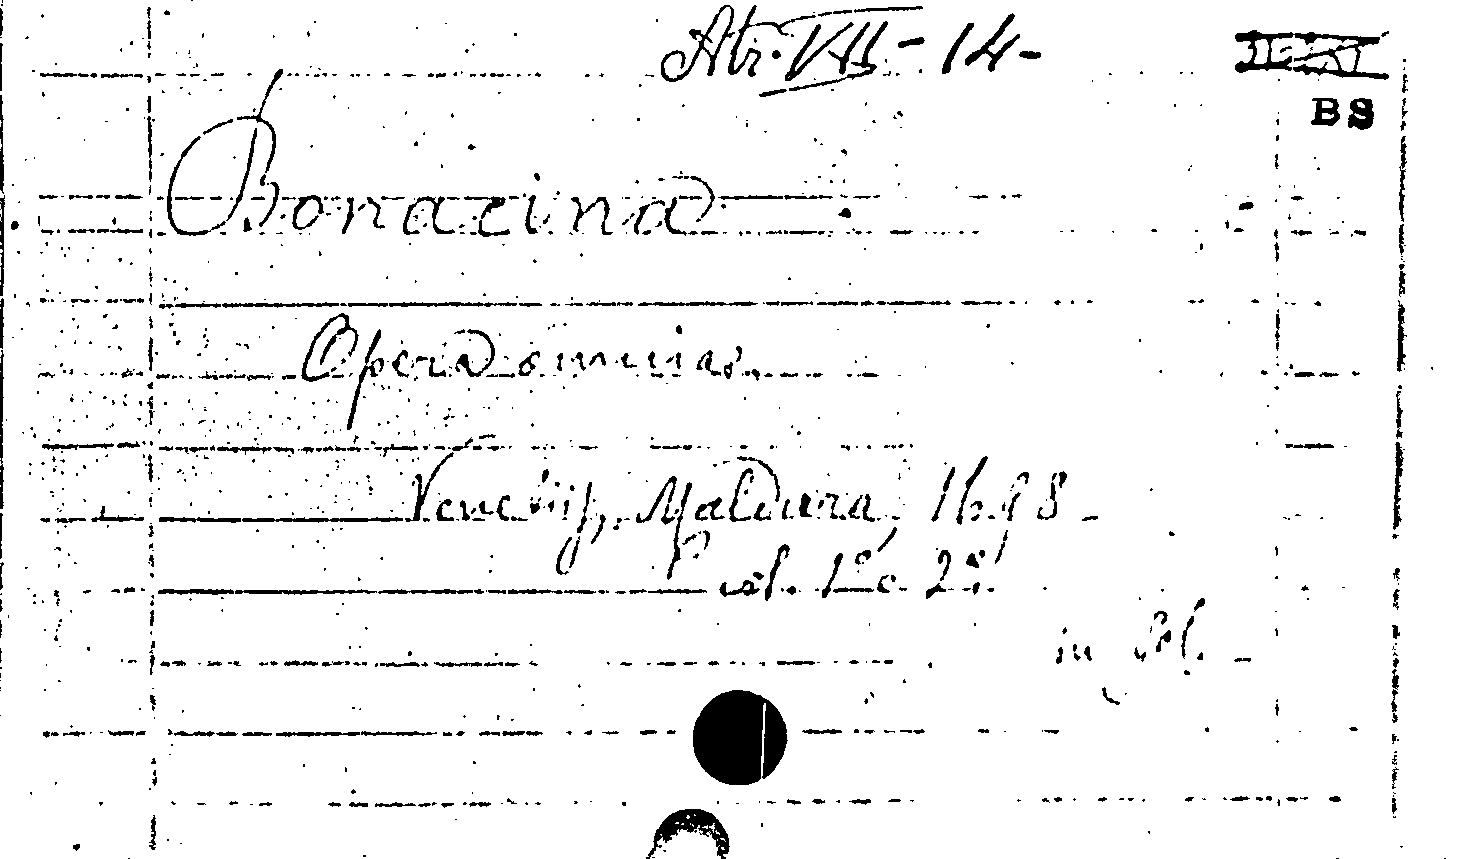 Atr. VII - 14 -
BS
Bonacina
Opera omnia.
Venetiij, Maldura, 1698 -
vol. 1º e 2º.
in fol. -